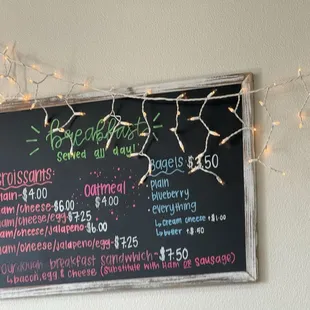 Breakfast
Served all day!
Croissants
plain-$4.00
ham/cheese-$6.00
ham/cheese/egg-$7.25
ham/cheese/jalapeno-$6.00
ham/cheese/jalapeno/egg-$7.25
Oatmeal
$4.00
Bagels $3.50
plain
blueberry
everything
cream cheese +$1.00
butter +$.40
Sourdough breakfast sandwich-$7.50
bacon, egg & cheese (substitute with Ham or Sausage)